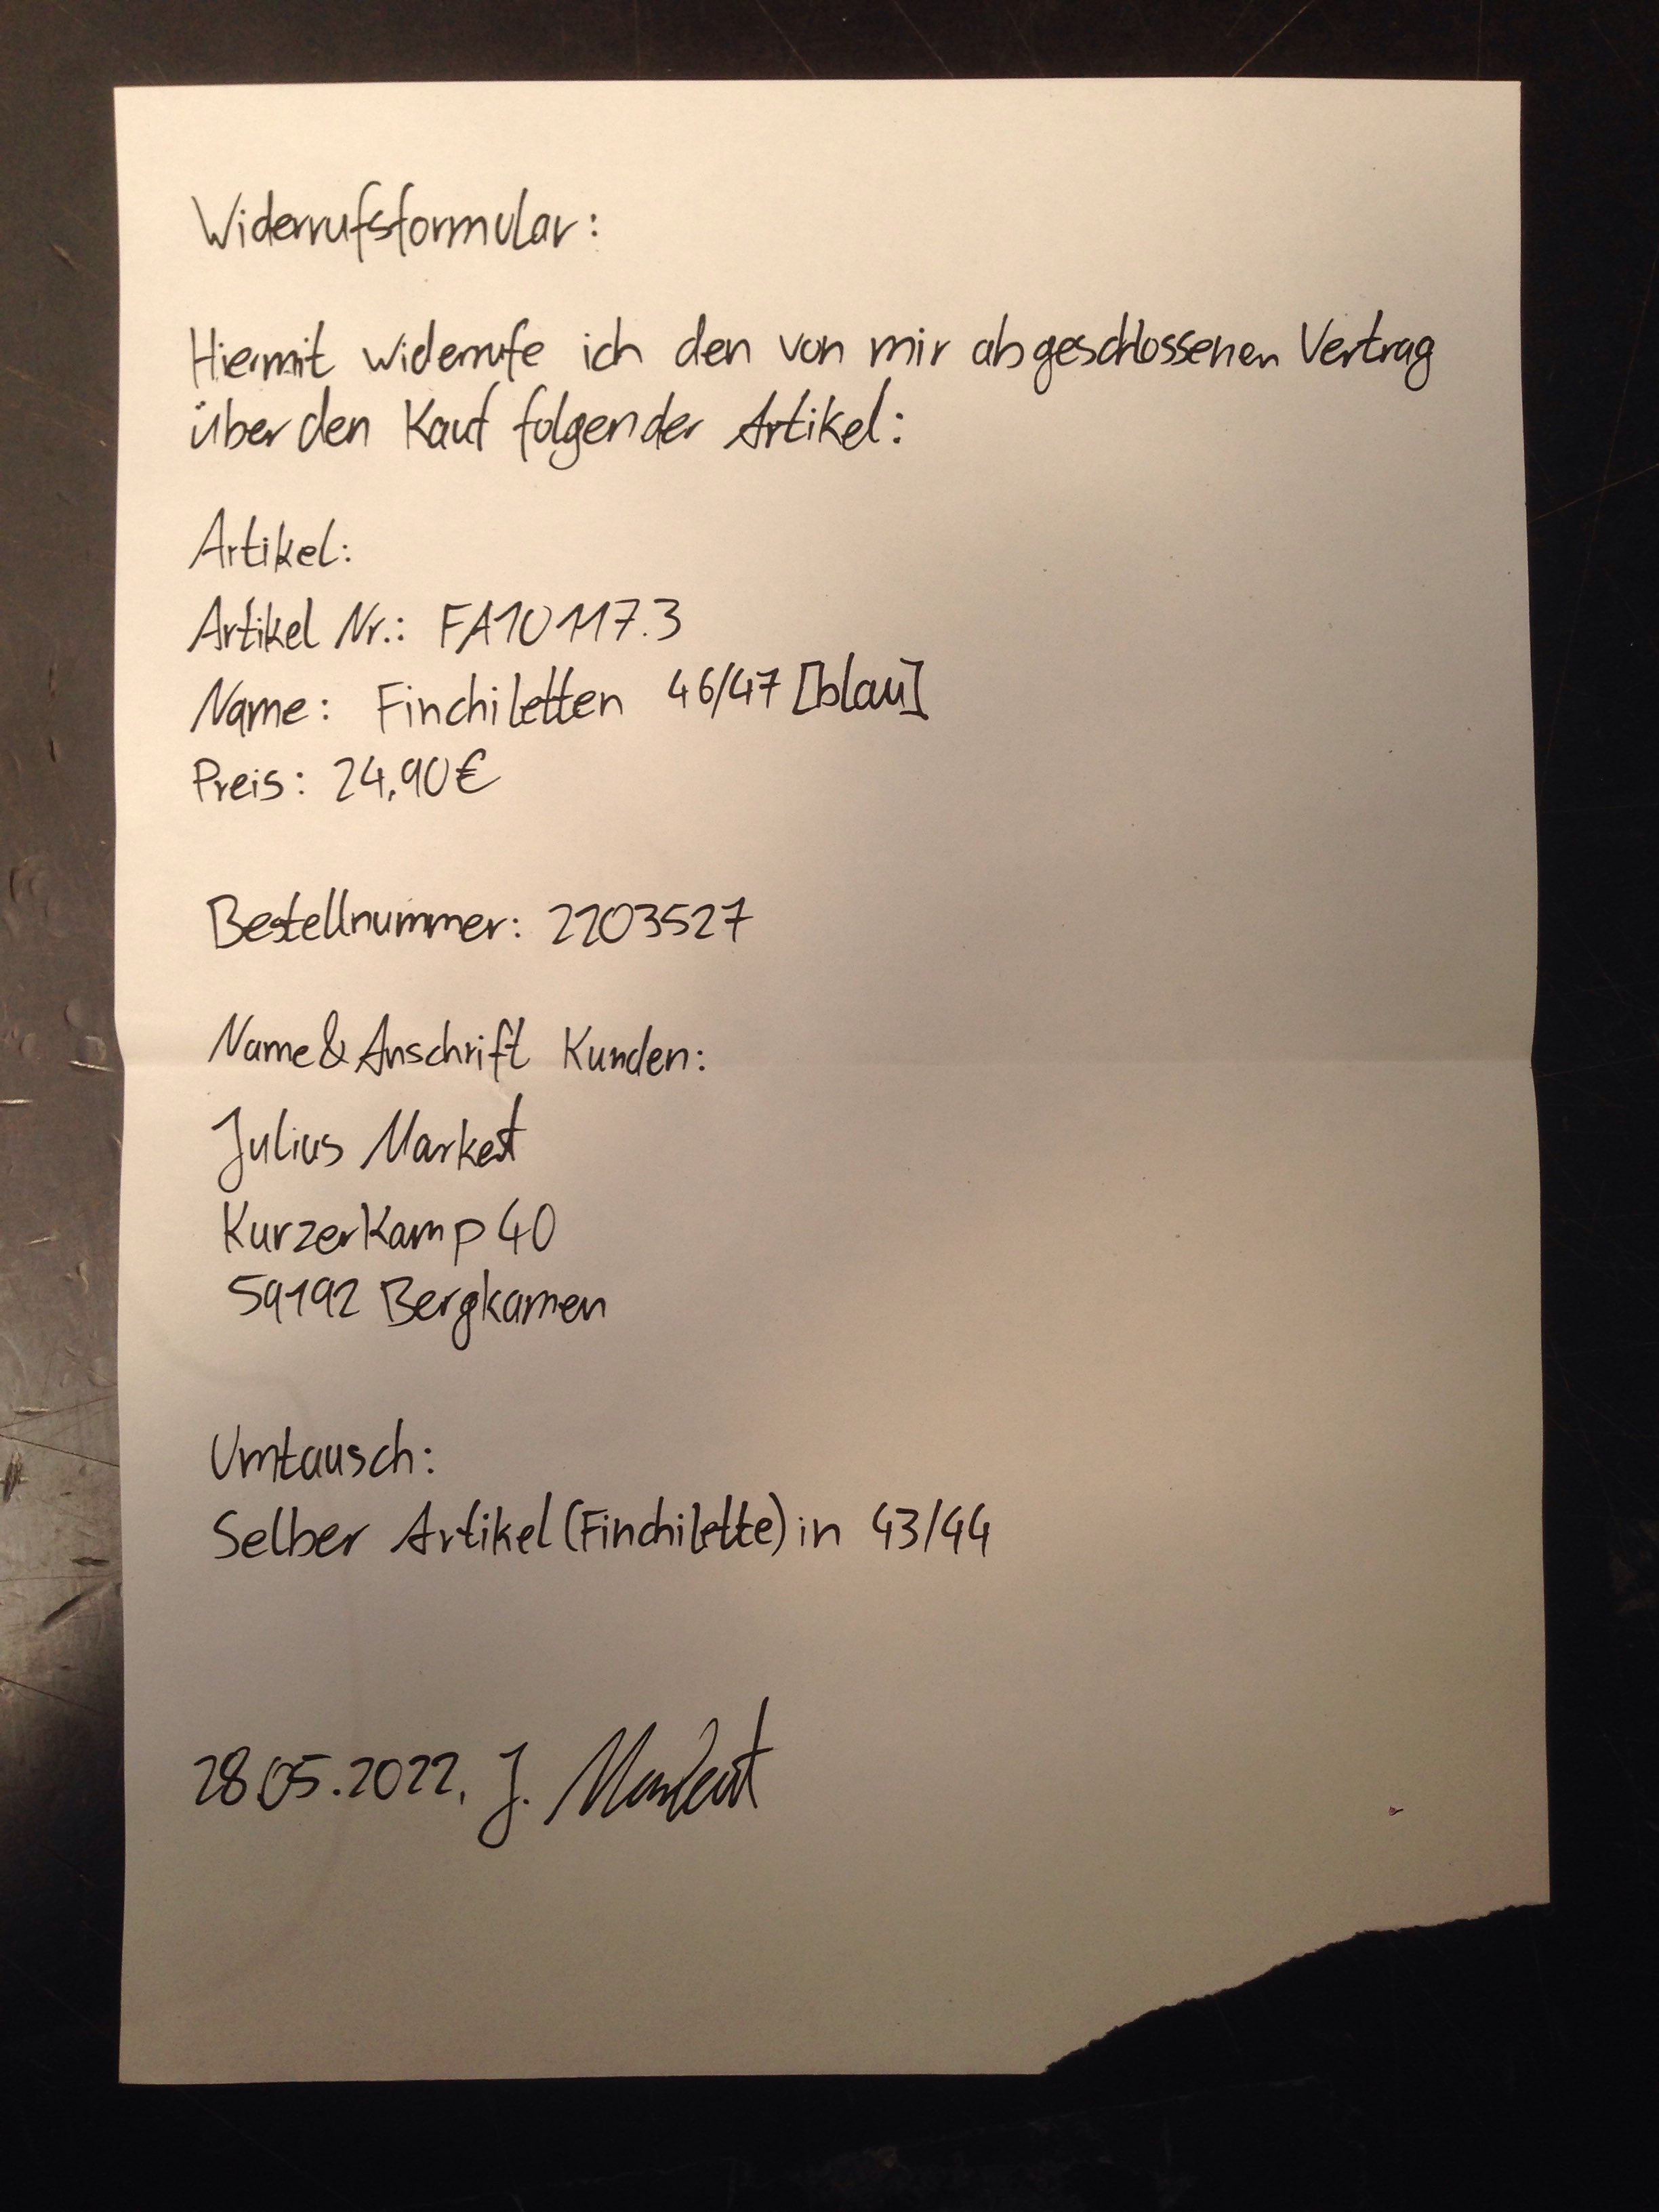 Widerrufsformular:
Hiermit widerrufe ich den von mir abgeschlossenen Vertrag
über den Kauf folgender Artikel:
Artikel:
Artikel Nr.: FA10117.3
Name: Finchiletten 46/47 [blau]
Preis: 24,90€
Bestellnummer: 2203527
Name & Anschrift Kunden:
Julius Markert
Kurzer Kamp 40
59192 Bergkamen
Umtausch:
Selber Artikel (Finchilette) in 43/44
28.05.2022, J. Markert